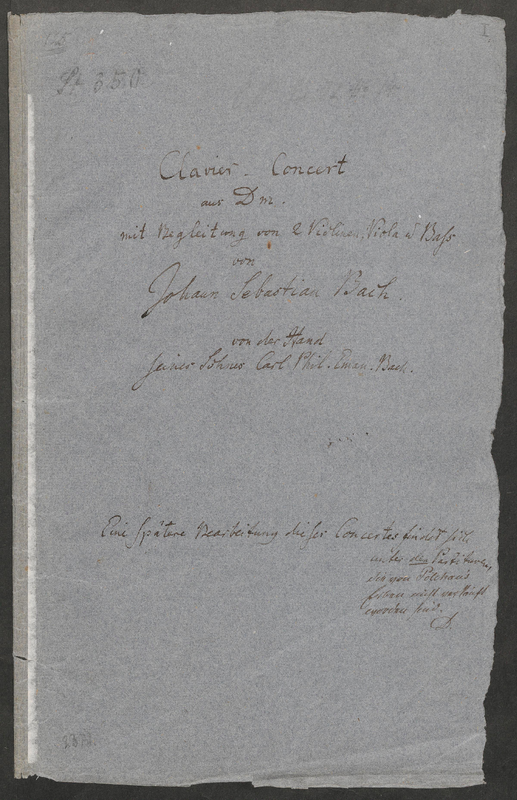 1.
St 350
Clavier-Concert
aus Dm.
mit Begleitung von 2 Violinen, Viola u Baſs
von
Johann Sebastian Bach.
von der Hand
seines Sohnes Carl Phil. Eman. Bach.
Eine spätere Bearbeitung dieses Concertes findet sich
unter den Partituren,
die von Pölchaus
nicht verkauft
worden sind.
D